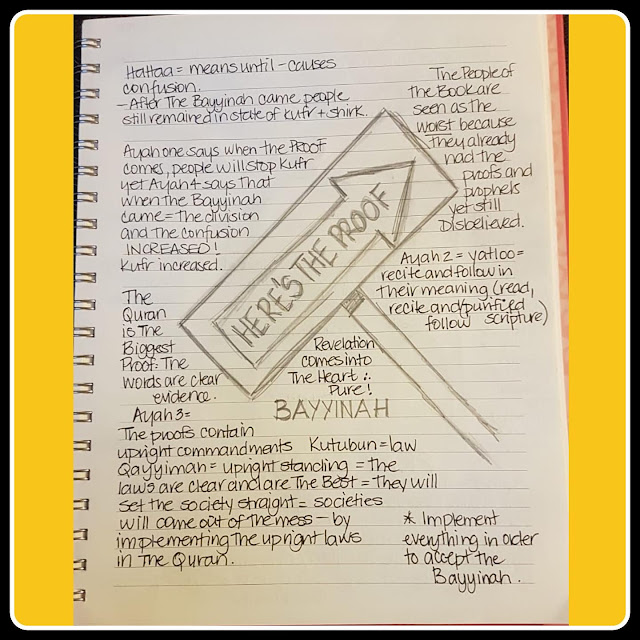 Hattaa = means until - causes
confusion.
- After The Bayyinah came people
still remained in state of kufr + shirk.
Ayah one says when the PROOF
comes, people will stop Kufr
yet Ayah 4 says That
when the Bayyinah
came = The division
and The confusion
INCREASED!
Kufr increased.
The
Quran
is The
Biggest
Proof. The
words are clear
evidence.
The People of
the Book are
seen as the
worst because
They already
had the
proofs and
prophets
yet still
Disbelieved.
Ayah 2 = yatloo =
recite and follow in
their meaning (read,
recite and/purified
follow scripture)
HERE'S THE PROOF
Revelation
comes into
The Heart ∴
Pure!
BAYYINAH
Ayah 3 =
The proofs contain
upright commandments Kutubun = law
Qayyimah = upright standing = the
laws are clear and are The Best = They will
set the society straight = societies
will come out of The mess - by
implementing The upright laws
in The Quran.
* Implement
everything in order
to accept the
Bayyinah.